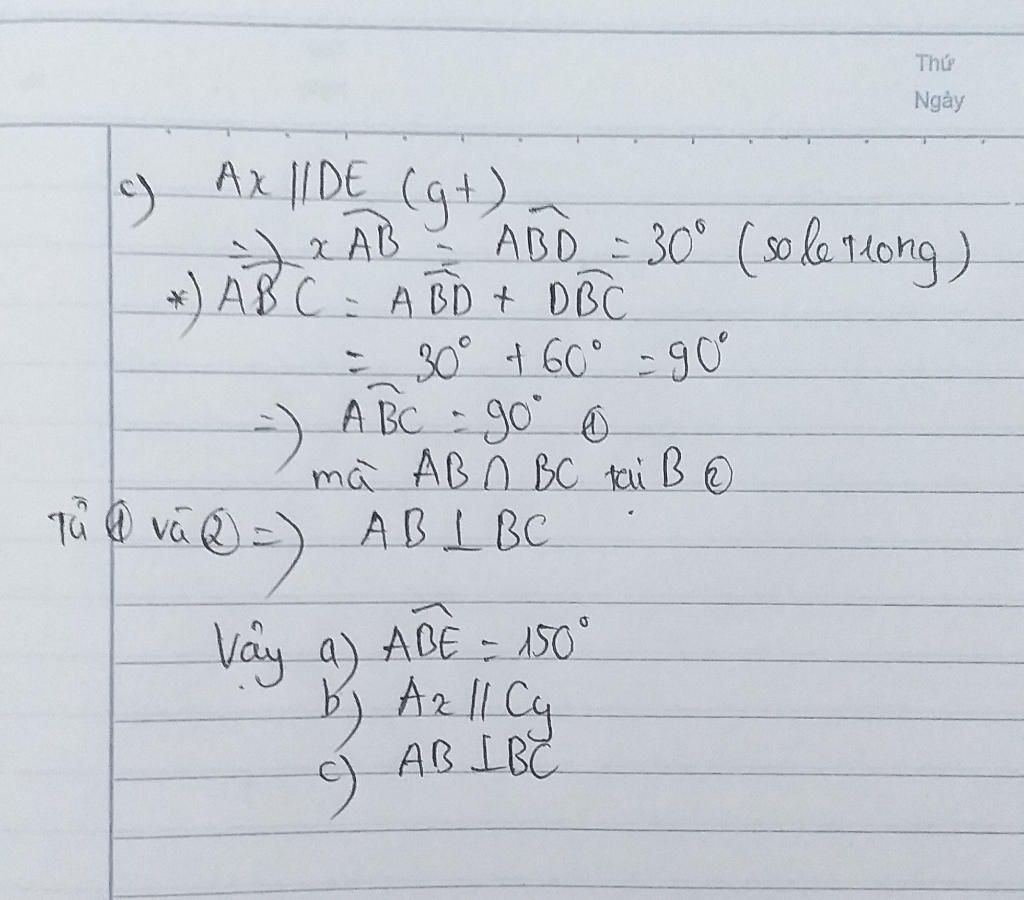 Thứ
Ngày
c) Ax // DE (gt)
=) x\widehat{AB} = A\widehat{BD} = 30° (so le trong)
*) \widehat{ABC} = A\widehat{BD} + D\widehat{BC}
= 30° + 60° = 90°
=) \widehat{ABC} = 90° ①
mà AB ∩ BC tại B ②
Từ ① và ② =) AB ⊥ BC
Vậy a) \widehat{ABE} = 150°
b) Ax // Cy
c) AB ⊥ BC